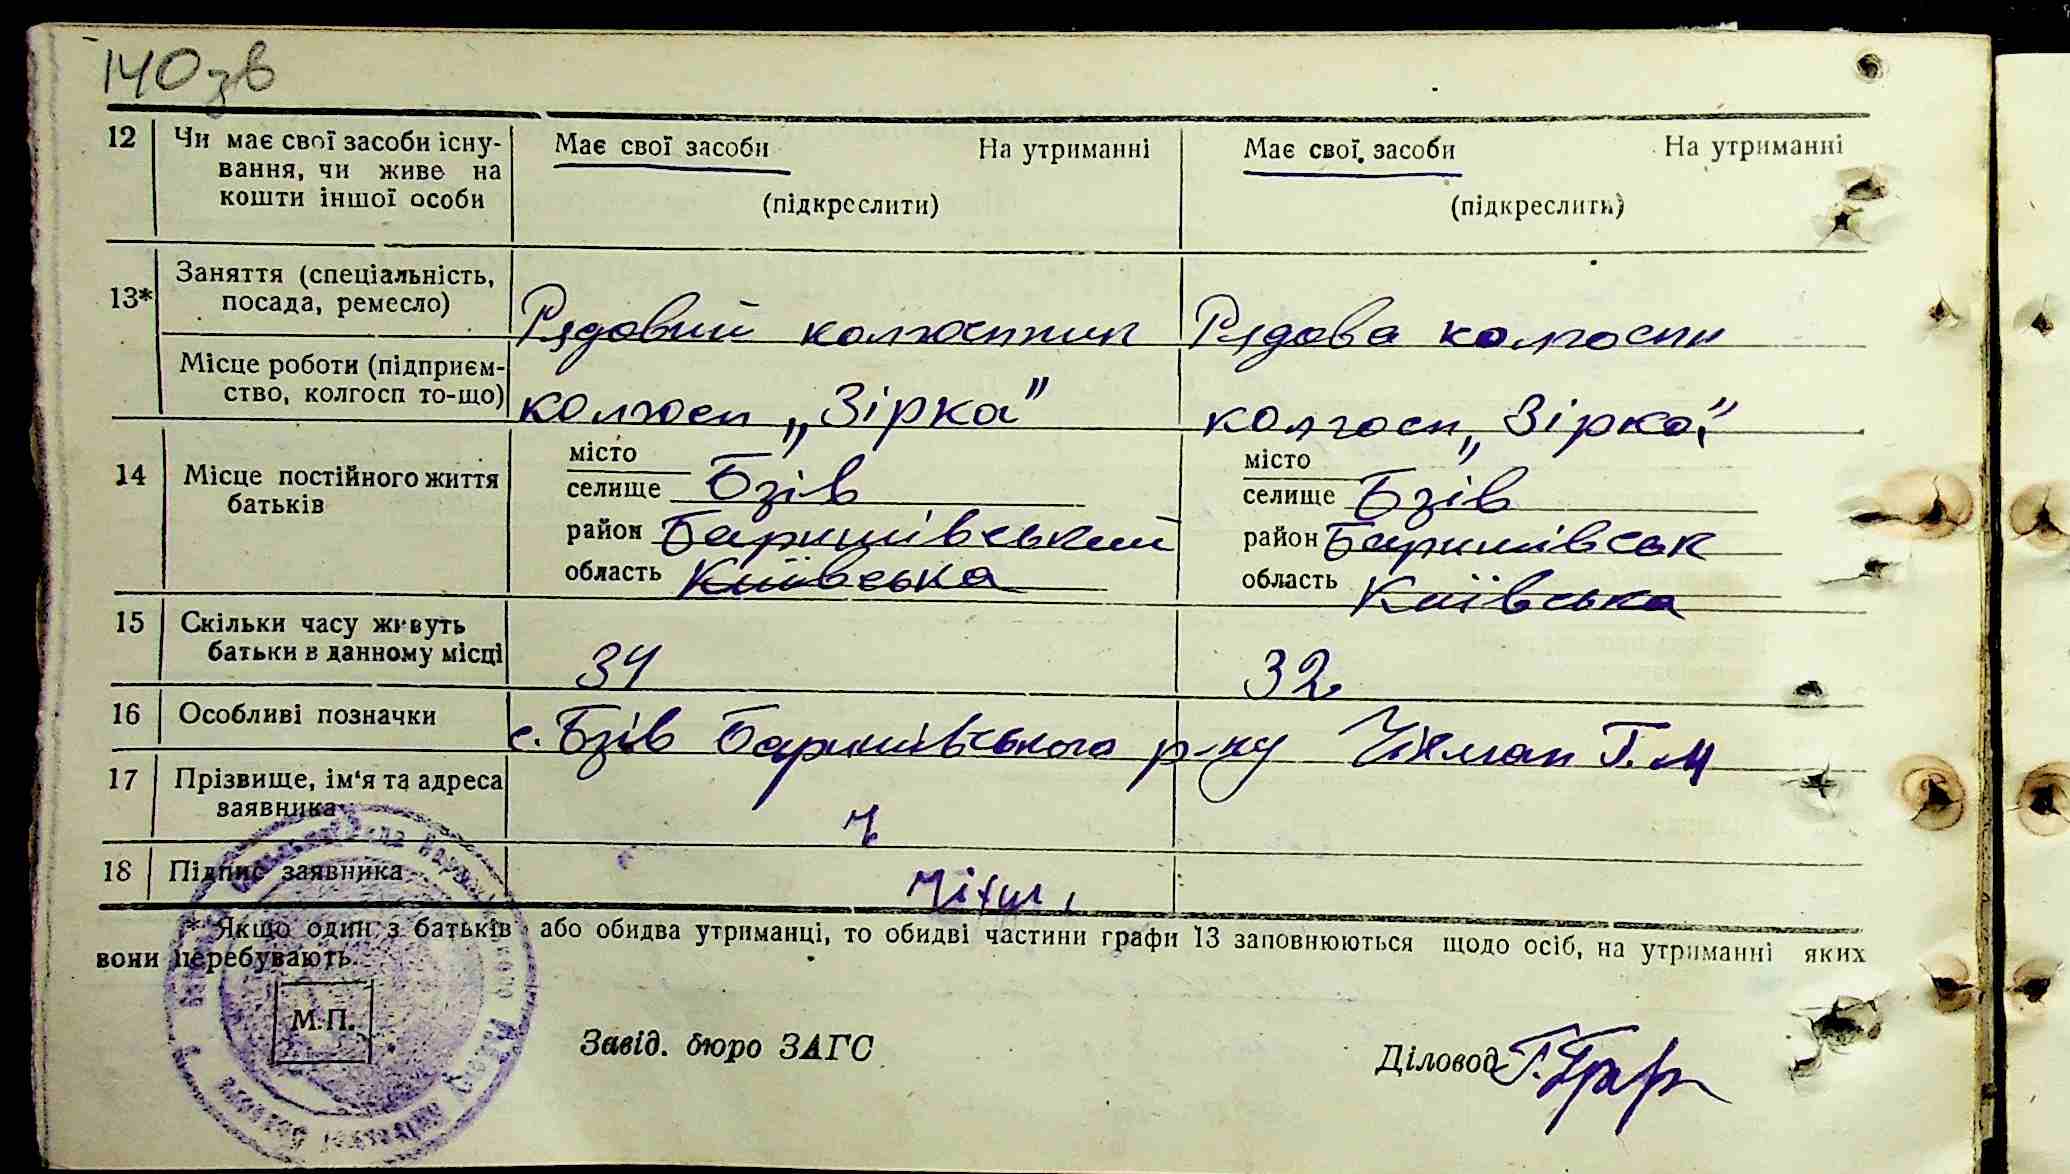 140зв
12 Чи має свої засоби існу- Має свої засоби На утриманні Має свої засоби На утриманні
вання, чи живе на
кошти іншої особи (підкреслити) (підкреслити)
13* Заняття (спеціальність,
посада, ремесло) Рядовий колгоспник Рядова колгоспн
Місце роботи (підприєм-
ство, колгосп то-що) колгосп „Зірка" колгосп „Зірка"
місто місто
14 Місце постійного життя селище Бзів селище Бзів
батьків район Баришівський район Баришівськ
область Київська область Київська
15 Скільки часу живуть
батьки в данному місці 34 32
16 Особливі позначки с. Бзів Баришівського р-ну Чіхман Г. М
17 Прізвище, ім'я та адреса
заявника
18 Підпис заявника
* Якщо один з батьків або обидва утриманці, то обидві частини графи 13 заповнюються щодо осіб, на утриманні яких
вони перебувають.
М.П.
Завід. бюро ЗАГС Діловод